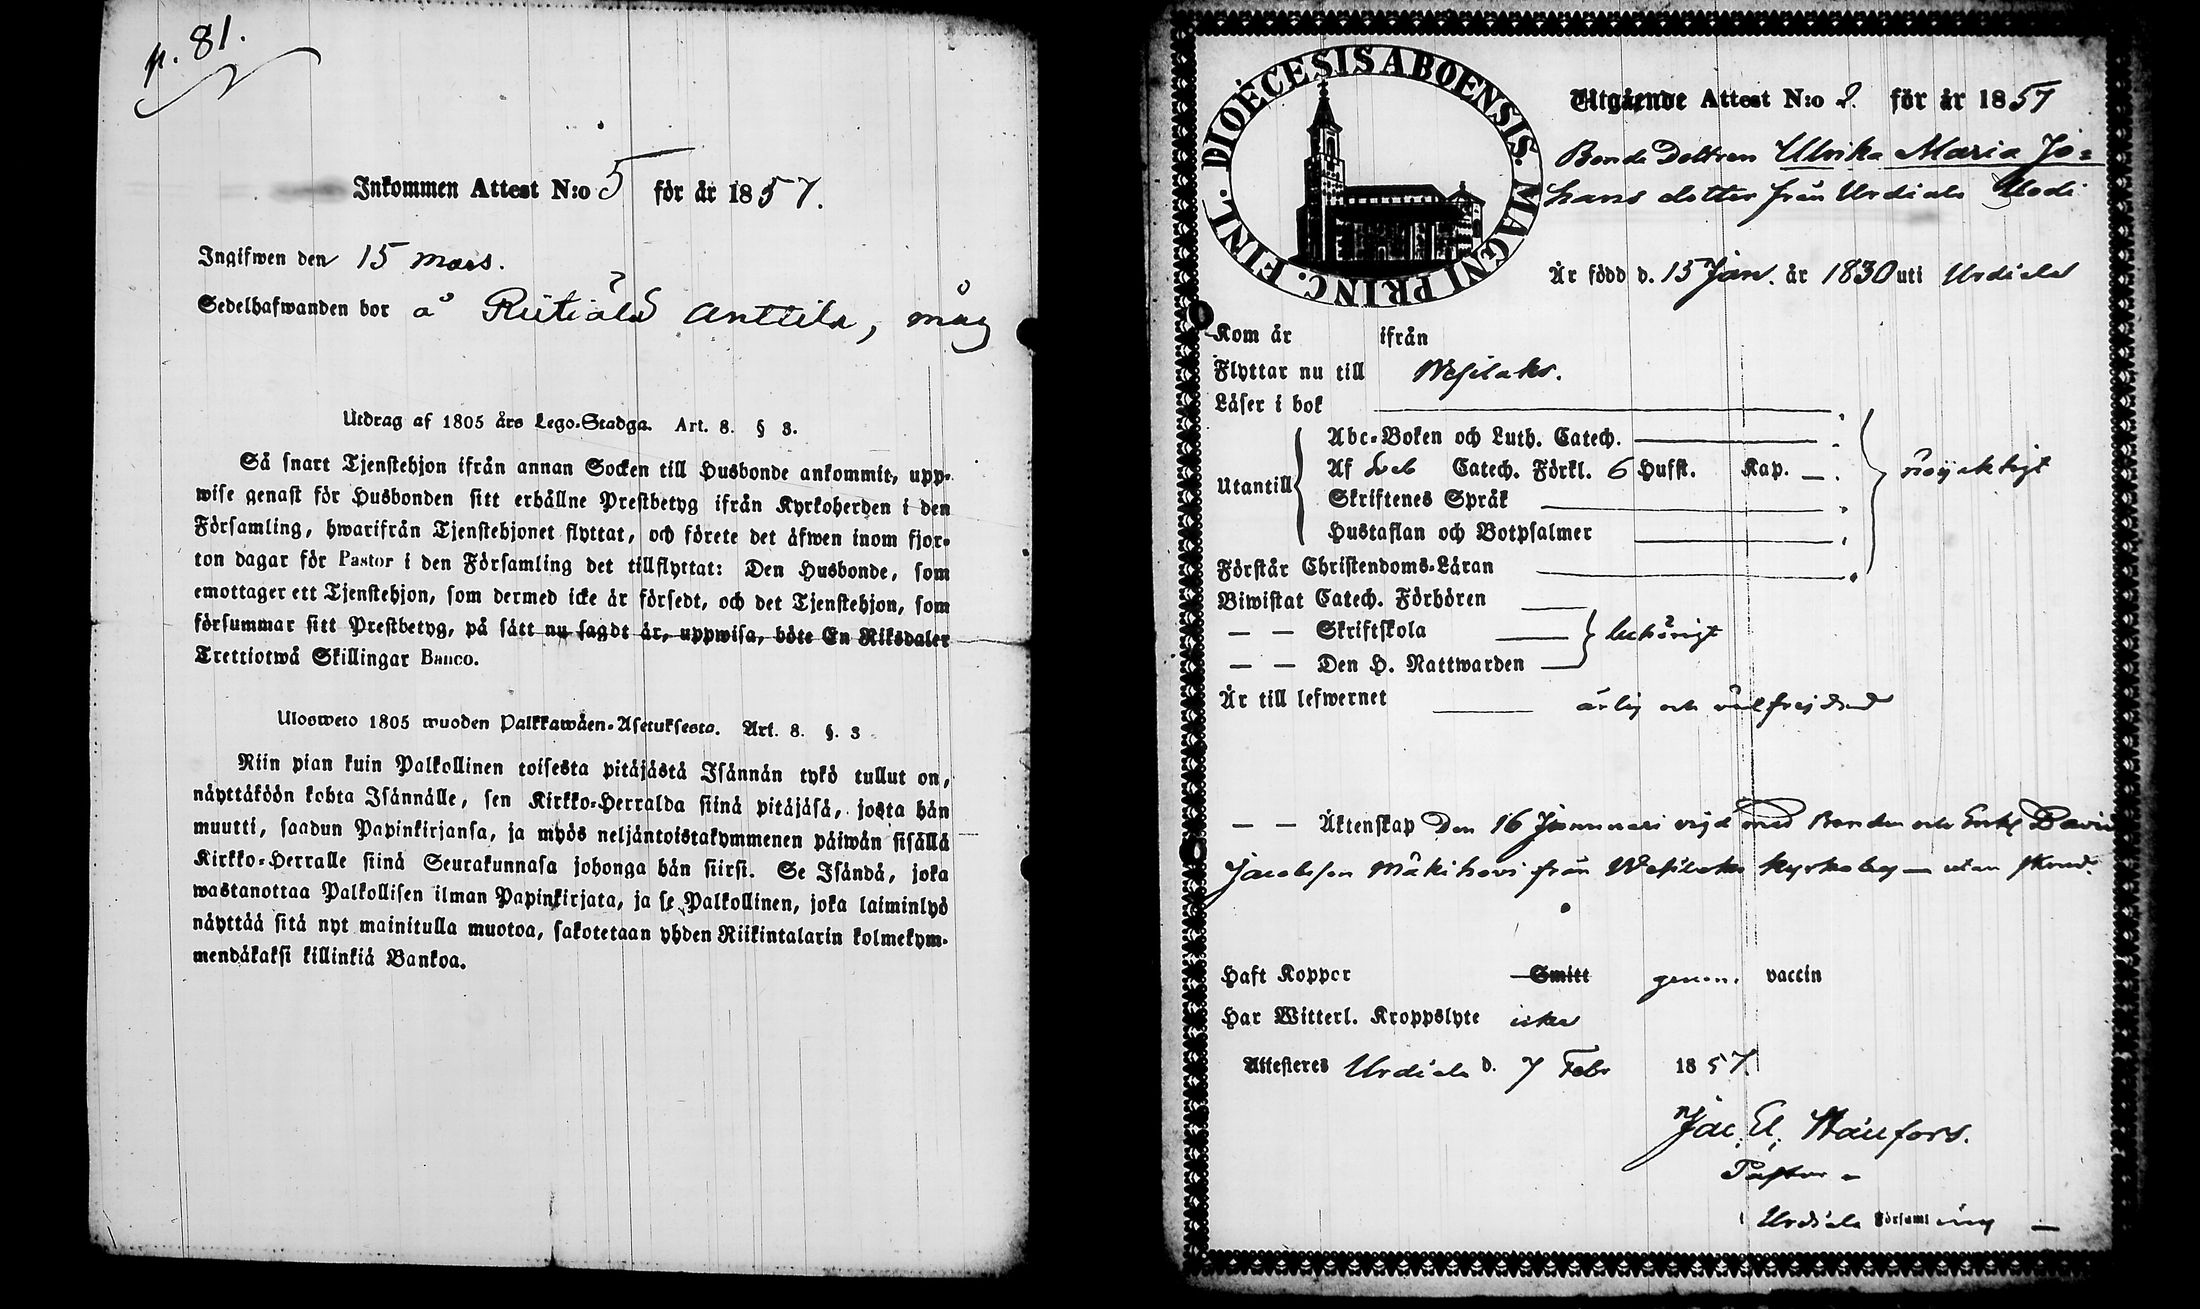 p. 81.
Inkommen Attest N:o 5 för år 1857.
Ingifwen den 15 mars.
Sedelhafwanden bor å Riitiälä Anttila, måg
Utdrag af 1805 års Lego-Stadga. Art. 8. § 3.
Så snart Tjenstehjon ifrån annan Socken till Husbonde ankommit, upp-
wise genast för Husbonden sitt erhållne Prestbetyg ifrån Kyrkoherden i den
Församling, hwarifrån Tjenstehjonet flyttat, och förete det äfwen inom fjor-
ton dagar för Pastor i den Församling det tillflyttat: Den Husbonde, som
emottager ett Tjenstehjon, som dermed icke är försedt, och det Tjenstehjon, som
försummar sitt Prestbetyg, på sätt nu sagdt är, uppwisa, böte En Riksdaler
Trettiotwå Skillingar Banco.
Ulosweto 1805 wuoden Palkkawäen-Asetuksesta. Art. 8. §. 3
Niin pian kuin Palkollinen toisesta pitäjästä Isännän tykö tullut on,
näyttäköön kohta Isännälle, sen Kirkko-Herralda siinä pitäjäsä, josta hän
muutti, saadun Papinkirjansa, ja myös neljäntoistakymmenen päiwän sisällä
Kirkko-Herralle siinä Seurakunnasa johonga hän siirsi. Se Isändä, joka
wastanottaa Palkollisen ilman Papinkirjata, ja se Palkollinen, joka laiminlyö
näyttää sitä nyt mainitulla muotoa, sakotetaan yhden Riikintalarin kolmekym-
mendäkaksi killinkiä Bankoa.
DIOECESIS ABOENSIS. MAGNI PRINC. FINL.
Utgående Attest N:o 2. för år 1857
Bonde Dottren Ulrika Maria Jo=
hans dotter från Urdiala
Är född d. 15 Jan. år 1830 uti Urdiala
Kom år ifrån
Flyttar nu till Wesilaks.
Läser i bok
Abc-Boken och Luth. Catech.
Utantill Af Catech. Förkl. 6 Hufst. Kap. nöjaktigt
Skriftenes Språk
Hustaflan och Botpsalmer
Förstår Christendoms-Läran
Biwistat Catech. Förhören
— — Skriftskola behörigt
— — Den H. Nattwarden
Är till lefwernet ärlig och välfrejdad
— — Äktenskap Den 16 Januari vigd med Bonden och Enkl David
Jacobsson Mäkihovi från Wesilaks Kyrkoby — utan
Haft Koppor Smitt genom vaccin
Har Witterl. Kroppslyte icke
Attesteres Urdiala d. 7 Febr 1857.
Jac. El. Stålfors.
Pastor
i Urdiala Församling